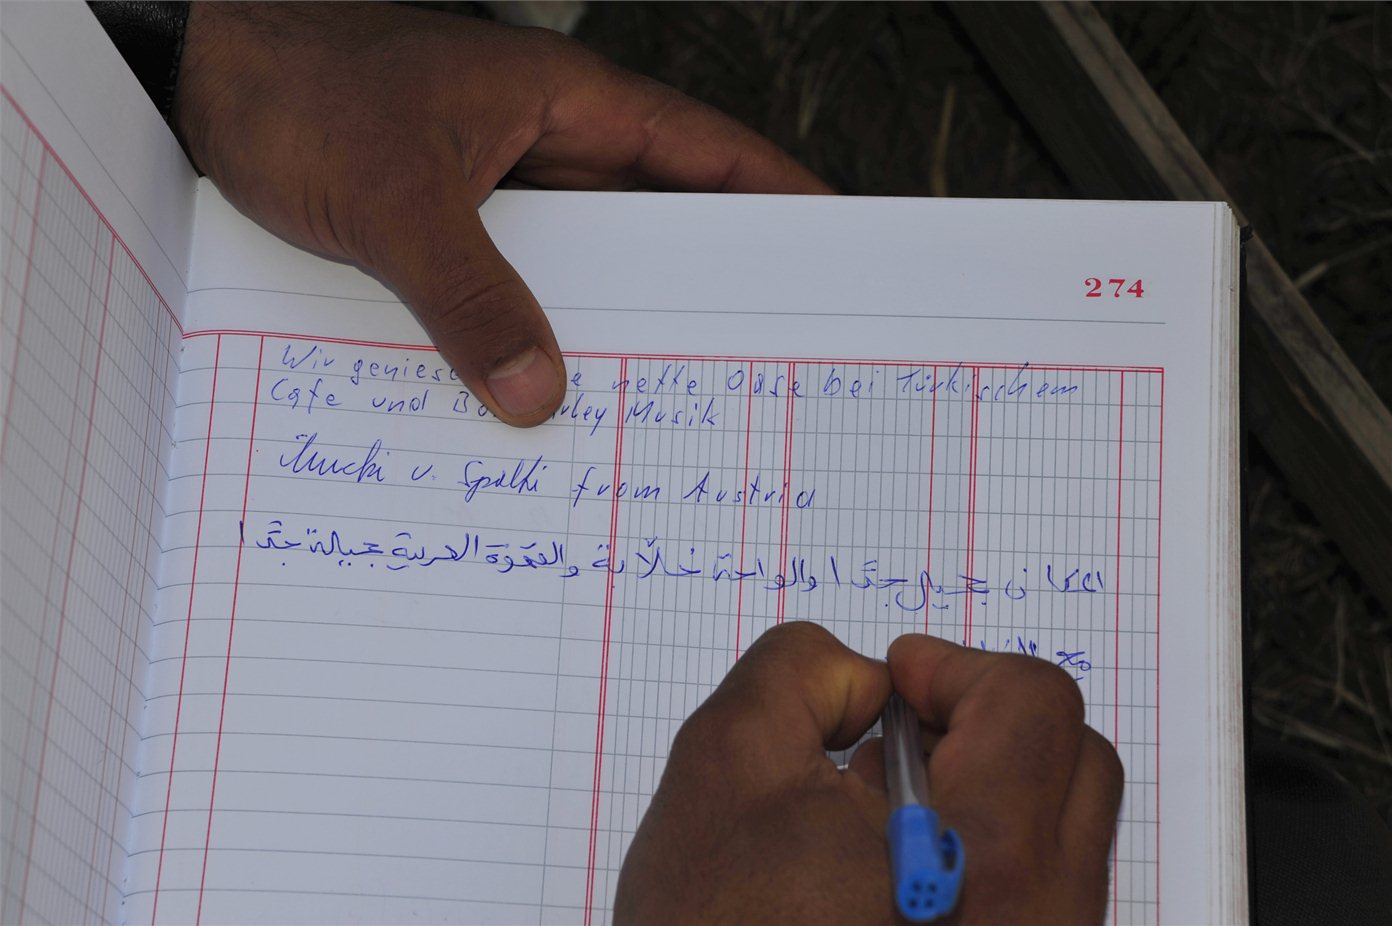 274
Wir genies e nette Oase bei Türkischem
Cafe und Bo rley Musik
Mucki v. Spatki from Austria
المكان جميل جدًا والواحة خلّابة والقهوة العربية جميلة جدًا
مع